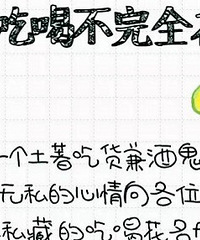 吃喝不完全
一个土著吃货兼酒鬼
无私的心情向各位
私藏的吃喝花名